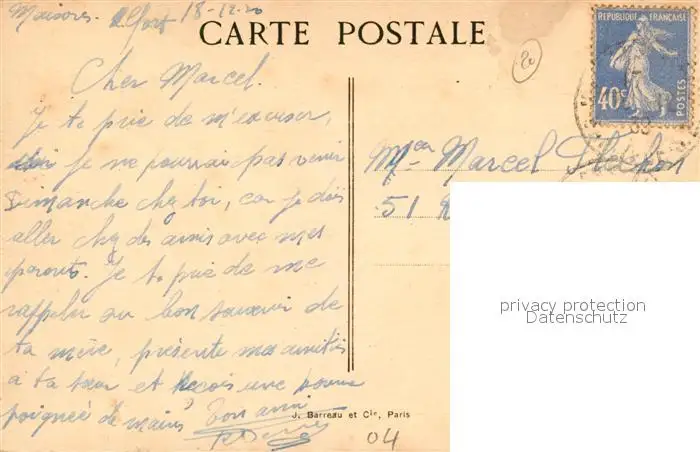 Maisons-Alfort 18-12-20
CARTE POSTALE
RÉPUBLIQUE FRANÇAISE
40c
POSTES
Cher Marcel.
Je te prie de m'excuser,
je ne pourrai pas venir
Dimanche chez toi, car je dois
aller chez des amis avec mes
parents. Je te prie de me
rappeler au bon souvenir de
ta mère, présente mes amitiés
à ta sœur et reçois une bonne
poignée de mains Ton ami
Marcel
51
privacy protection
Datenschutz
J. Barreau et Cie, Paris
04